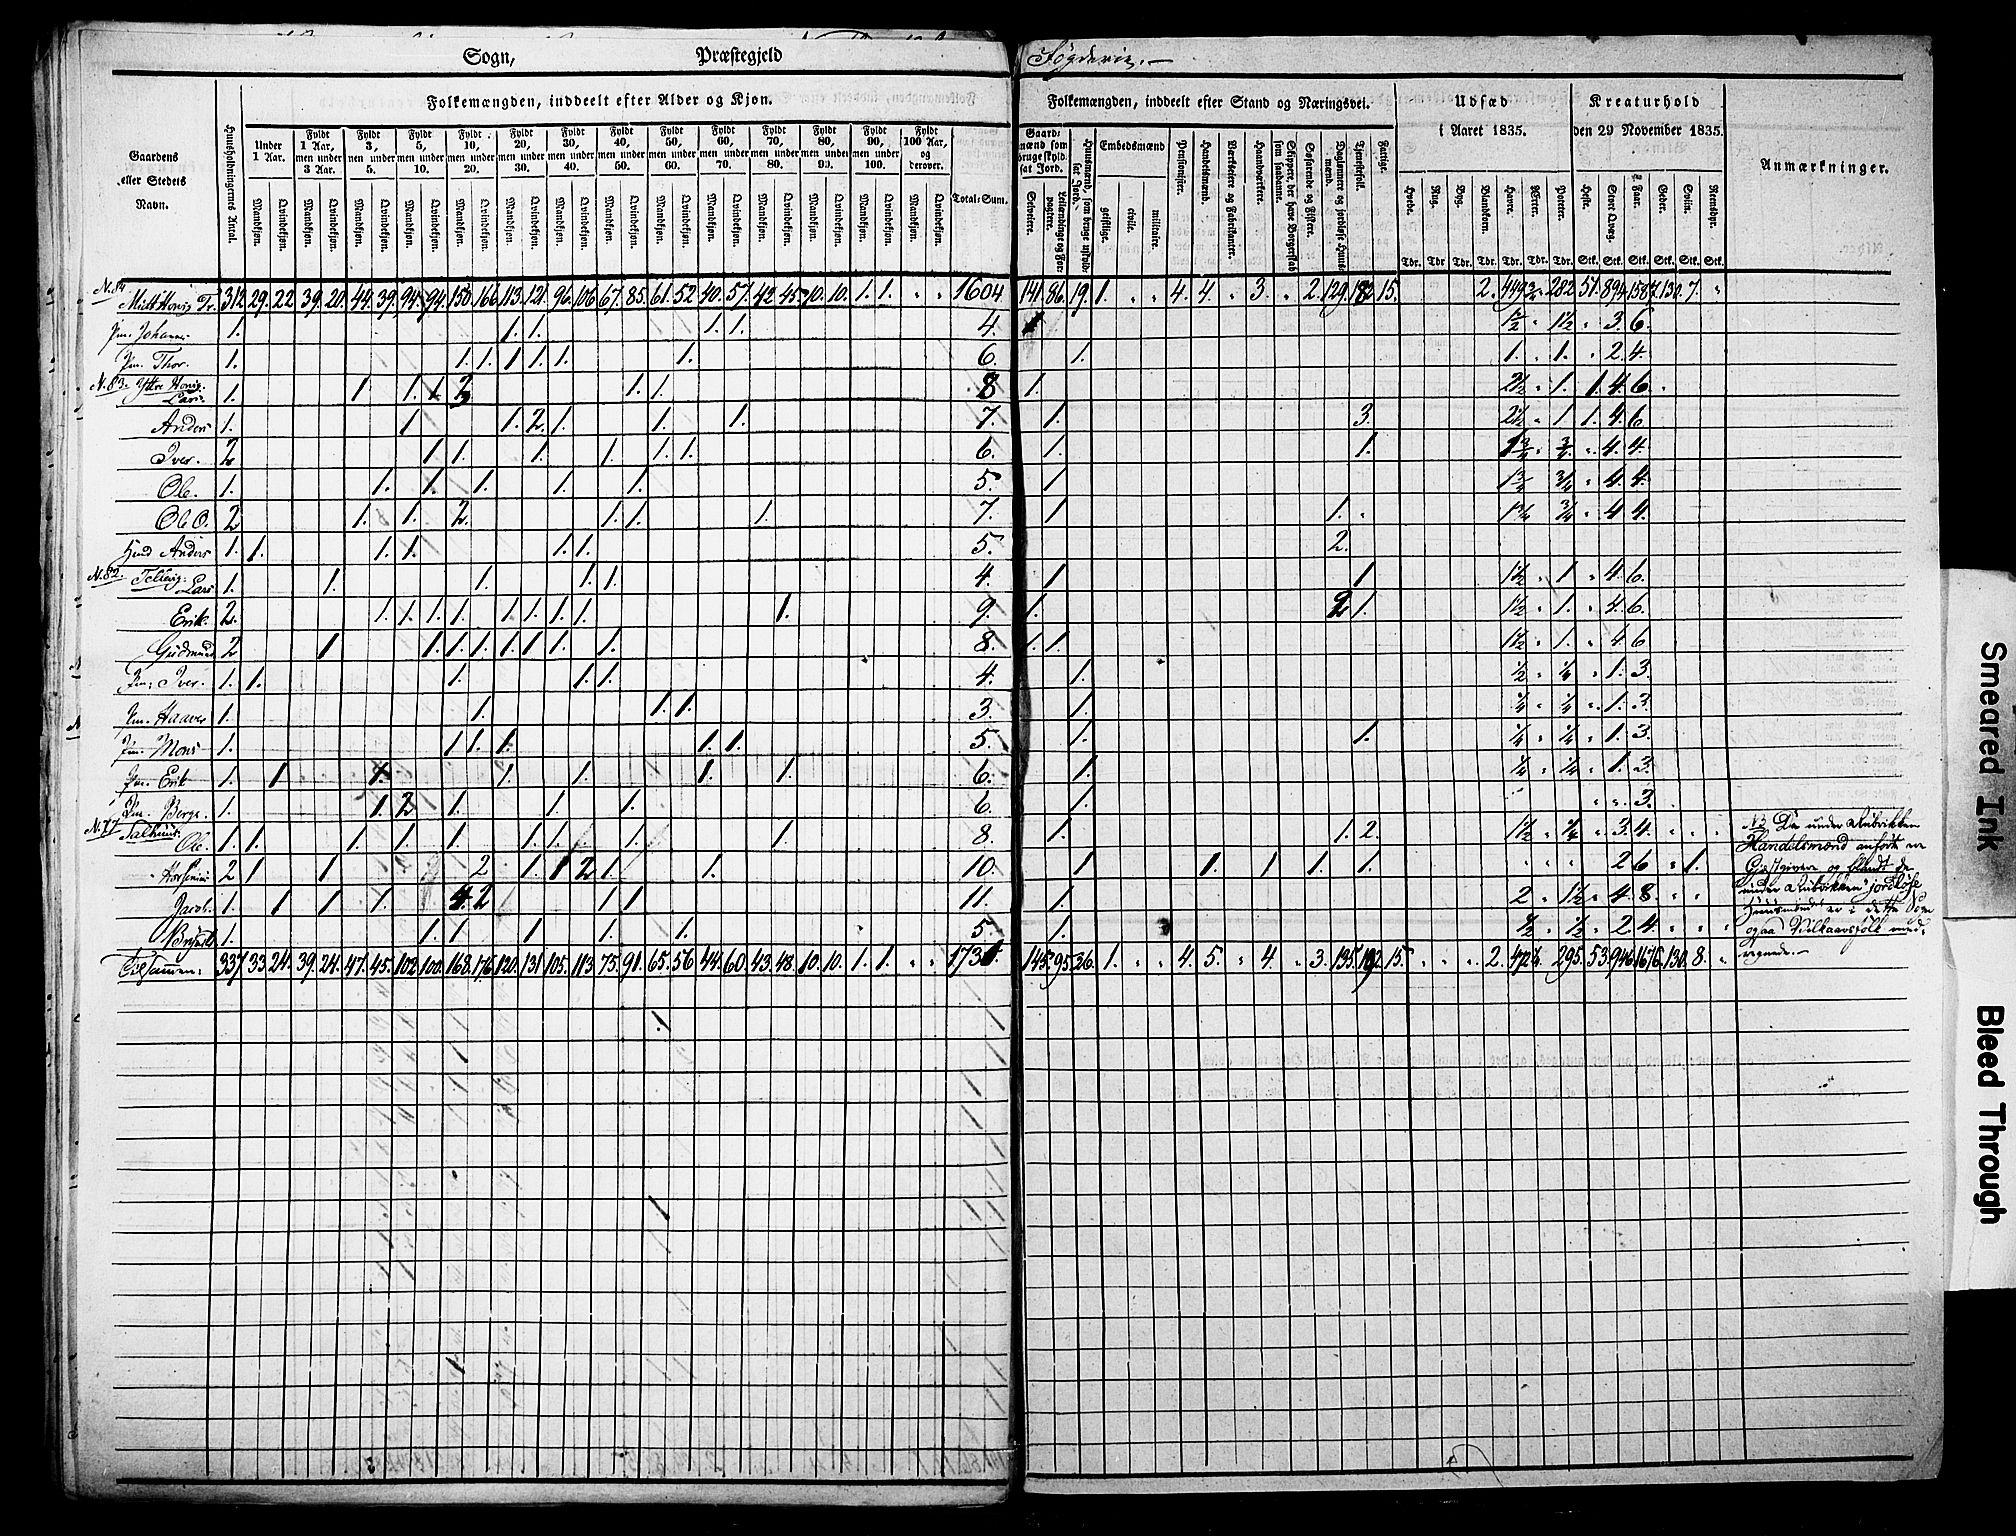 Sogn, Præstegjeld Fögderie.
Folkemængden, inddeelt efter Alder og Kjøn.
Folkemængden, inddeelt efter Stand og Næringsvei.
Udsæd
i Aaret 1835.
Kreaturhold
den 29 November 1835.
Anmærkninger.
Gaardens
eller Stedets
Navn.
Huusholdningernes Antal.
Under
1 Aar.
Fyldt
1 Aar,
men under
3 Aar.
Fyldt
3,
men under
5.
Fyldt
5,
men under
10.
Fyldt
10,
men under
20.
Fyldt
20,
men under
30.
Fyldt
30,
men under
40.
Fyldt
40,
men under
50.
Fyldt
50,
men under
60.
Fyldt
60,
men under
70.
Fyldt
70,
men under
80.
Fyldt
80,
men under
90.
Fyldt
90,
men under
100.
Fyldt
100 Aar,
og
derover.
Total-Sum.
Mandkjøn. Qvindekjøn.
Gaardmænd som bruge skyldsat Jord.
Selveiere.
Leilændinge og Forpagtere.
Huusmænd, som bruge skyldsat Jord.
Embedsmænd
geistlige. civile. militaire.
Pensionister.
Handelsmænd.
Værkseiere og Fabrikanter.
Haandværkere.
Skippere, der have Borgerskab som saadanne.
Søfarende og Fiskere.
Daglønnere og jordløse Huusmænd.
Tjenestefolk.
Fattige.
Hvede. Rug. Byg. Blandkorn. Havre. Erter. Poteter.
Heste. Stort Qvæg. Faar. Geder. Sviin. Rensdyr.
Tdr. Tdr. Tdr. Tdr. Tdr. Tdr. Tdr. Stk. Stk. Stk. Stk. Stk. Stk.
N. 84
312. 29. 22. 39. 20. 44. 39. 94. 94. 150. 166. 113. 121. 96. 106. 67. 85. 61. 52. 40. 57. 42. 45. 10. 10. 1. 1. 1604 141. 86. 19. 1. 4. 4. 3. 2. 129. 182. 15. 2. 449¾ 282 51. 894. 1587. 130. 7.
Johannes 1. 1. 1. 1. 1. 4. 1½ 1½ 3. 6.
Thor. 1. 1. 1. 1. 1. 1. 1. 6. 1. 1. 1. 2. 4.
N. 83. Yttre Honig.
Lars 1. 1. 1. 1. 2 1. 1. 8 1. 2½ 1. 1. 4. 6.
Anders 1. 1. 1. 2. 1. 1. 1. 7. 1. 3. 2½ 1 1. 4. 6
Iver. 2 1. 1. 1. 1. 1. 1. 6. 1. 1. 1¾ ¾ 4. 4.
Ole. 1. 1. 1. 1. 1. 1. 5. 1 1¾ ¾ 4. 4.
Ole O. 2 1. 1. 2. 1. 1. 1. 7. 1 1. 1¾ ¾ 4 4.
Anders 1. 1. 1. 1. 1. 1. 5. 2.
N. 82.
Lars 1. 1. 1. 1. 1. 4. 1 1 1½ 1 4. 6.
Erik. 2. 1. 1. 1. 1. 1. 1. 1. 1. 1. 9. 1. 2 1. 1½ 1. 4. 6.
Gudmund 2 1 1. 1. 1. 1. 1. 1. 1. 8. 1. 1. 1½ 1. 4. 6
Iver. 1. 1. 1. 1. 1. 4. 1. ½ ¼ 1. 3.
Haaver 1. 1. 1. 1. 3. 1. ¼ ¼ 1. 3
Mons 1. 1. 1. 1. 1. 1. 5. 1. 1. ¼ ¼ 1. 3.
Erik 1. 1 1. 1. 1. 1. 1. 6. 1. ¼ ¼ 1. 3.
Berge. 1. 1. 2 1. 1. 1. 6. 1. 3.
N. 77
Ole. 1. 1. 1. 1. 1. 1. 1. 1. 8. 1. 1. 2. 1½ ¼ 3. 4.
2 1 1. 2 1. 1 2 1. 1. 10. 1 1. 1 1. 1. 2 6. 1.
Jacob. 1. 1 1. 1. 4. 2 1. 1. 11. 1. 2 1½ 4. 8.
1. 1. 1. 1. 1. 1. 5. 1. ½ ½ 2 4.
Tilsammen: 337 33. 24. 39. 24. 47. 45. 102. 100. 168. 176. 120. 131. 105. 113. 75. 91. 65. 56. 44. 60. 43. 48. 10. 10. 1. 1. 1731 145. 95. 26. 1. 4. 5. 4. 3. 135. 192. 15. 2. 295. 53. 946. 1676. 130. 8.
NB De under Rubrikken
Handelsmænd anførte er
Gjæstgivere og blandt de
under Rubrikken "jordløse
Huusmænd" er i dette Sogn
ogsaa Vilkaarsfolk med-
regnede.—
Smeared Ink
Bleed Through